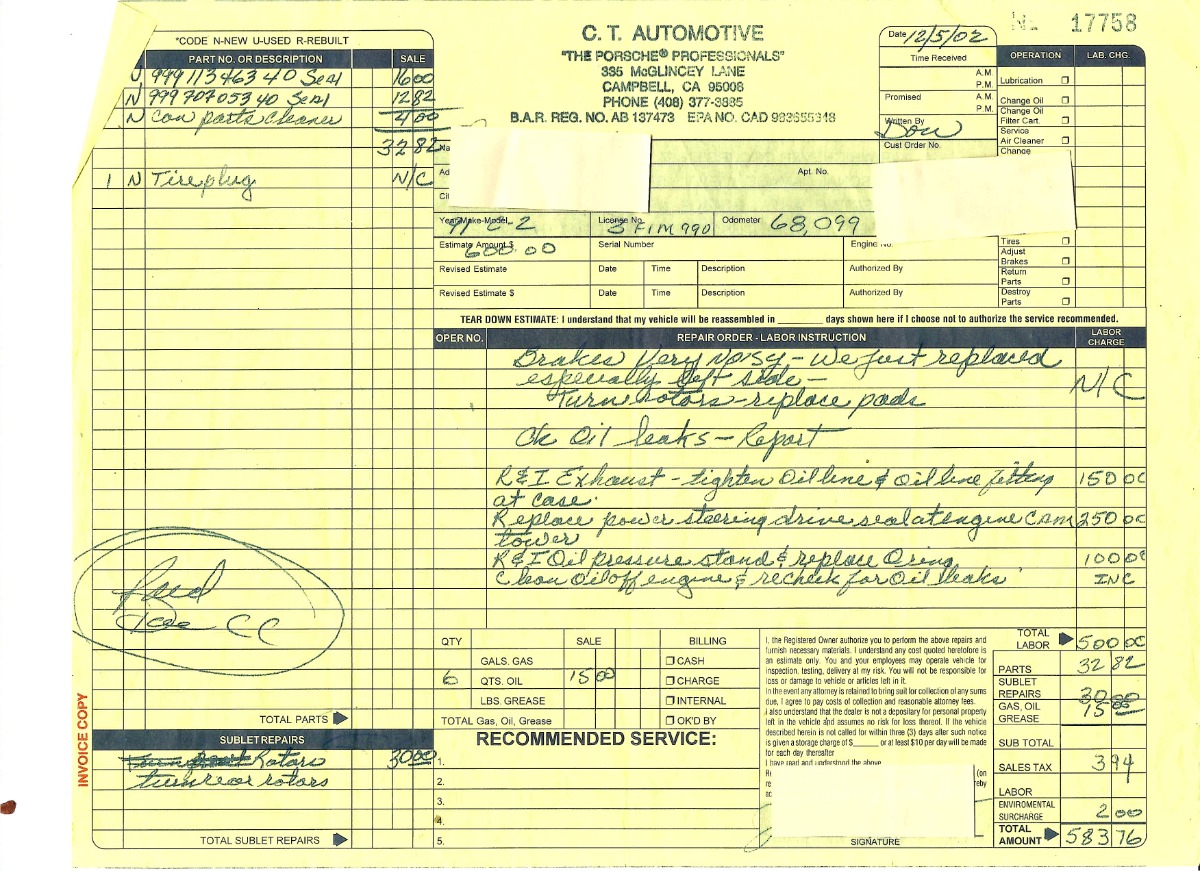 *CODE N-NEW U-USED R-REBUILT
PART NO. OR DESCRIPTION SALE
999 113 463 40 Seal 16 00
N 999 707 053 40 Seal 12 82
N Can parts cleaner 4 00
32 82
1 N Tire plug N/C
C. T. AUTOMOTIVE
"THE PORSCHE® PROFESSIONALS"
335 McGLINCEY LANE
CAMPBELL, CA 95008
PHONE (408) 377-3885
B.A.R. REG. NO. AB 137473 EPA NO. CAD 983655348
No. 17758
Date 12/5/02
Time Received
A.M.
P.M.
Promised A.M.
P.M.
Written By
Don
Cust Order No.
OPERATION LAB. CHG.
Lubrication
Change Oil
Change Oil
Filter Cart.
Service
Air Cleaner
Change
Tires
Adjust
Brakes
Return
Parts
Destroy
Parts
Na
Ad Apt. No.
Cit
Year-Make-Model 91 C-2 License No. 3FIM990 Odometer 68,099
Estimate Amount $ 600.00 Serial Number Engine No.
Revised Estimate Date Time Description Authorized By
Revised Estimate $ Date Time Description Authorized By
TEAR DOWN ESTIMATE: I understand that my vehicle will be reassembled in ________ days shown here if I choose not to authorize the service recommended.
OPER NO. REPAIR ORDER - LABOR INSTRUCTION LABOR CHARGE
Brakes Very Noisy - We just replaced
especially left side - N/C
Turn rotors - replace pads
Ck Oil leaks - Report
R&I Exhaust - tighten Oil line & oil line fitting 150 00
at case.
Replace power steering drive seal at engine cam 250 00
tower
R&I Oil pressure stand & replace Oring 100 00
Clean Oil off engine & recheck for Oil leaks INC
CC
QTY SALE BILLING
GALS. GAS CASH
6 QTS. OIL 15 00 CHARGE
LBS. GREASE INTERNAL
TOTAL Gas, Oil, Grease OK'D BY
I, the Registered Owner authorize you to perform the above repairs and
furnish necessary materials. I understand any cost quoted heretofore is
an estimate only. You and your employees may operate vehicle for
inspection, testing, delivery at my risk. You will not be responsible for
loss or damage to vehicle or articles left in it.
In the event any attorney is retained to bring suit for collection of any sums
due, I agree to pay costs of collection and reasonable attorney fees.
I also understand that the dealer is not a depositary for personal property
left in the vehicle and assumes no risk for loss thereof. If the vehicle
described herein is not called for within three (3) days after such notice
is given a storage charge of $______ or at least $10 per day will be made
for each day thereafter
I have read and understood the above.
(on
SIGNATURE
TOTAL LABOR 500 00
PARTS 32 82
SUBLET REPAIRS 30 00
GAS, OIL GREASE 15 00
SUB TOTAL
SALES TAX 3 94
LABOR
ENVIROMENTAL SURCHARGE 2 00
TOTAL AMOUNT 583 76
TOTAL PARTS
SUBLET REPAIRS
Rotors 30 00
turn rear rotors
TOTAL SUBLET REPAIRS
RECOMMENDED SERVICE:
1.
2.
3.
4.
5.
INVOICE COPY